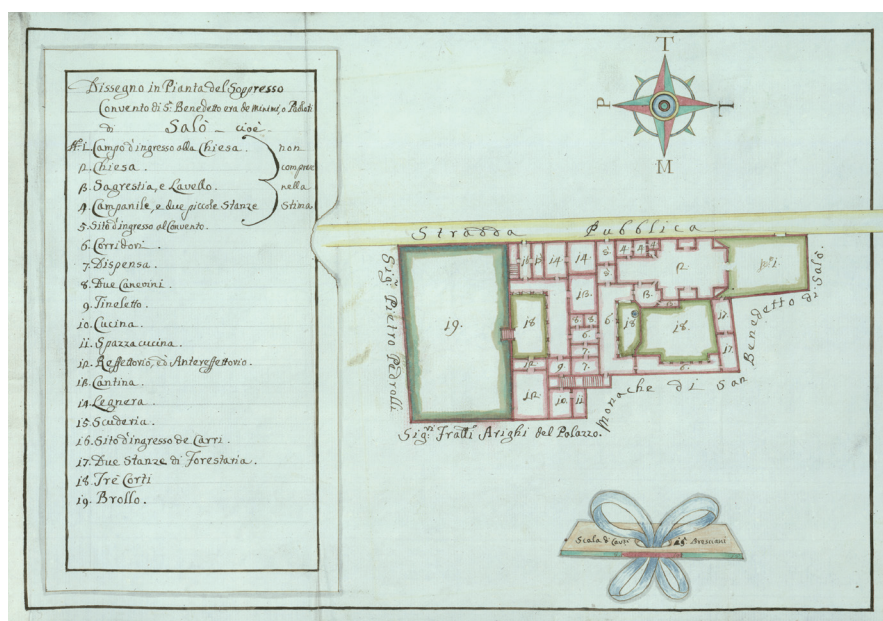 Dissegno in Pianta del Soppresso
Convento di S. Benedetto era de Minimi, o Padloti
di Salò - cioè.
Nº. 1. Campo d'ingresso alla Chiesa.
2. Chiesa.
3. Sagrestia, e Lavello.
4. Campanile, e due piccole Stanze
non
comprese
nella
Stima
5. Sito d'ingresso al Convento.
6. Corridori.
7. Dispensa.
8. Due Canevini.
9. Tineletto.
10. Cucina.
11. Spazzacucina.
12. Reffettorio, ed Antereffettorio.
13. Cantina.
14. Legnera.
15. Scuderia.
16. Sito d'ingresso de Carri.
17. Due Stanze di Forestaria.
18. Trè Corti
19. Brollo.
T
P
L
M
Stradda Pubblica
Sigr. Pietro Pedrolli
Sigri. Fratti Arighi del Polazzo.
Monache di San Benedetto di Salò.
16
14
14
4
4
4
2
Nº 1.
13
3
19.
18
18
18.
8
8
6
6
7
7
9
12
12
10
11
17
17
6
Scala di Cavezzi Bresciani